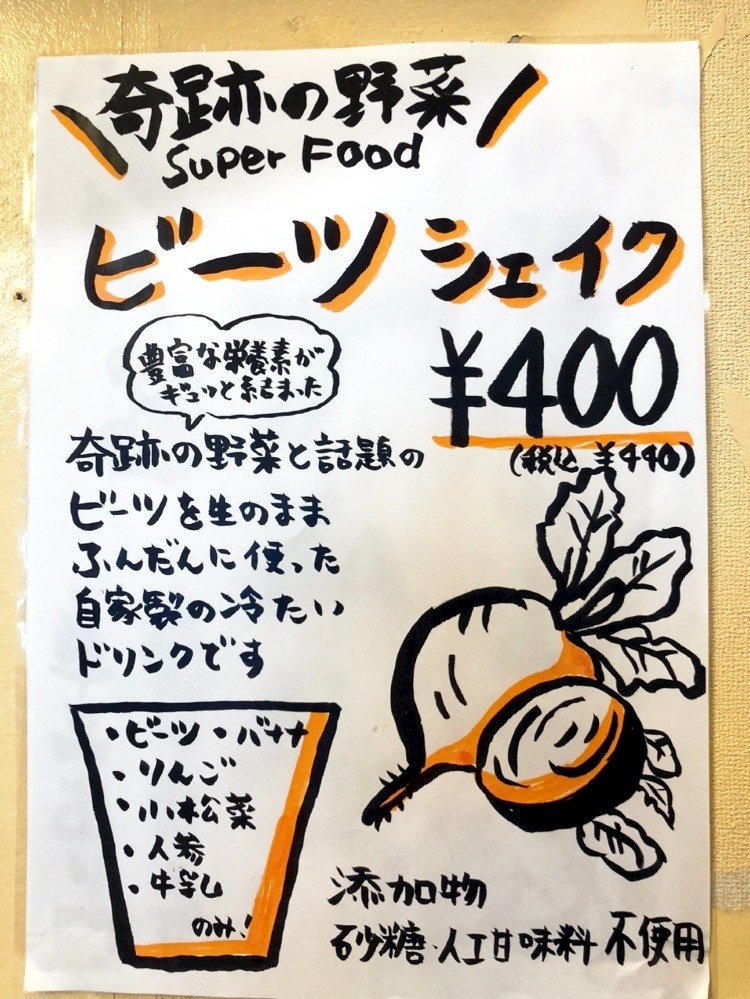 奇跡の野菜
Super Food
ビーツ シェイク
豊富な栄養素が
ギュッと詰まった
¥400
(税込 ¥440)
奇跡の野菜と話題の
ビーツを生のまま
ふんだんに使った
自家製の冷たい
ドリンクです
・ビーツ ・バナナ
・りんご
・小松菜
・人参
・牛乳
のみ!
添加物
砂糖・人工甘味料 不使用